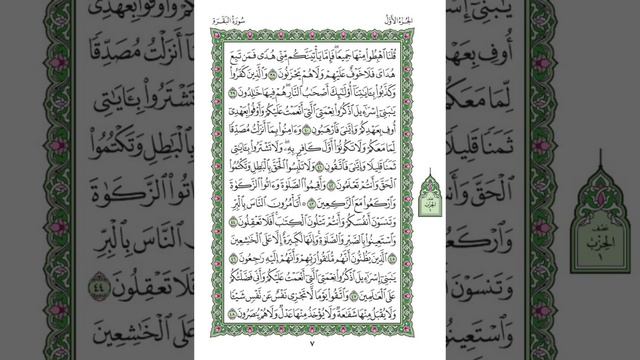 الجزء الأول
سورة البقرة
قُلْنَا ٱهْبِطُوا۟ مِنْهَا جَمِيعًا ۖ فَإِمَّا يَأْتِيَنَّكُم مِّنِّى هُدًى فَمَن تَبِعَ
هُدَاىَ فَلَا خَوْفٌ عَلَيْهِمْ وَلَا هُمْ يَحْزَنُونَ ٣٨ وَٱلَّذِينَ كَفَرُوا۟
وَكَذَّبُوا۟ بِـَٔايَـٰتِنَآ أُو۟لَـٰٓئِكَ أَصْحَـٰبُ ٱلنَّارِ ۖ هُمْ فِيهَا خَـٰلِدُونَ ٣٩
يَـٰبَنِىٓ إِسْرَٰٓءِيلَ ٱذْكُرُوا۟ نِعْمَتِىَ ٱلَّتِىٓ أَنْعَمْتُ عَلَيْكُمْ وَأَوْفُوا۟ بِعَهْدِىٓ
أُوفِ بِعَهْدِكُمْ وَإِيَّـٰىَ فَٱرْهَبُونِ ٤٠ وَءَامِنُوا۟ بِمَآ أَنزَلْتُ مُصَدِّقًا
لِّمَا مَعَكُمْ وَلَا تَكُونُوٓا۟ أَوَّلَ كَافِرٍۭ بِهِۦ ۖ وَلَا تَشْتَرُوا۟ بِـَٔايَـٰتِى
ثَمَنًا قَلِيلًا وَإِيَّـٰىَ فَٱتَّقُونِ ٤١ وَلَا تَلْبِسُوا۟ ٱلْحَقَّ بِٱلْبَـٰطِلِ وَتَكْتُمُوا۟
ٱلْحَقَّ وَأَنتُمْ تَعْلَمُونَ ٤٢ وَأَقِيمُوا۟ ٱلصَّلَوٰةَ وَءَاتُوا۟ ٱلزَّكَوٰةَ
وَٱرْكَعُوا۟ مَعَ ٱلرَّٰكِعِينَ ٤٣ ۞ أَتَأْمُرُونَ ٱلنَّاسَ بِٱلْبِرِّ
وَتَنسَوْنَ أَنفُسَكُمْ وَأَنتُمْ تَتْلُونَ ٱلْكِتَـٰبَ ۚ أَفَلَا تَعْقِلُونَ ٤٤
وَٱسْتَعِينُوا۟ بِٱلصَّبْرِ وَٱلصَّلَوٰةِ ۚ وَإِنَّهَا لَكَبِيرَةٌ إِلَّا عَلَى ٱلْخَـٰشِعِينَ
٤٥ ٱلَّذِينَ يَظُنُّونَ أَنَّهُم مُّلَـٰقُوا۟ رَبِّهِمْ وَأَنَّهُمْ إِلَيْهِ رَٰجِعُونَ ٤٦
يَـٰبَنِىٓ إِسْرَٰٓءِيلَ ٱذْكُرُوا۟ نِعْمَتِىَ ٱلَّتِىٓ أَنْعَمْتُ عَلَيْكُمْ وَأَنِّى فَضَّلْتُكُمْ
عَلَى ٱلْعَـٰلَمِينَ ٤٧ وَٱتَّقُوا۟ يَوْمًا لَّا تَجْزِى نَفْسٌ عَن نَّفْسٍ شَيْـًٔا
وَلَا يُقْبَلُ مِنْهَا شَفَـٰعَةٌ وَلَا يُؤْخَذُ مِنْهَا عَدْلٌ وَلَا هُمْ يُنصَرُونَ ٤٨
نصف
الحزب
١
٧